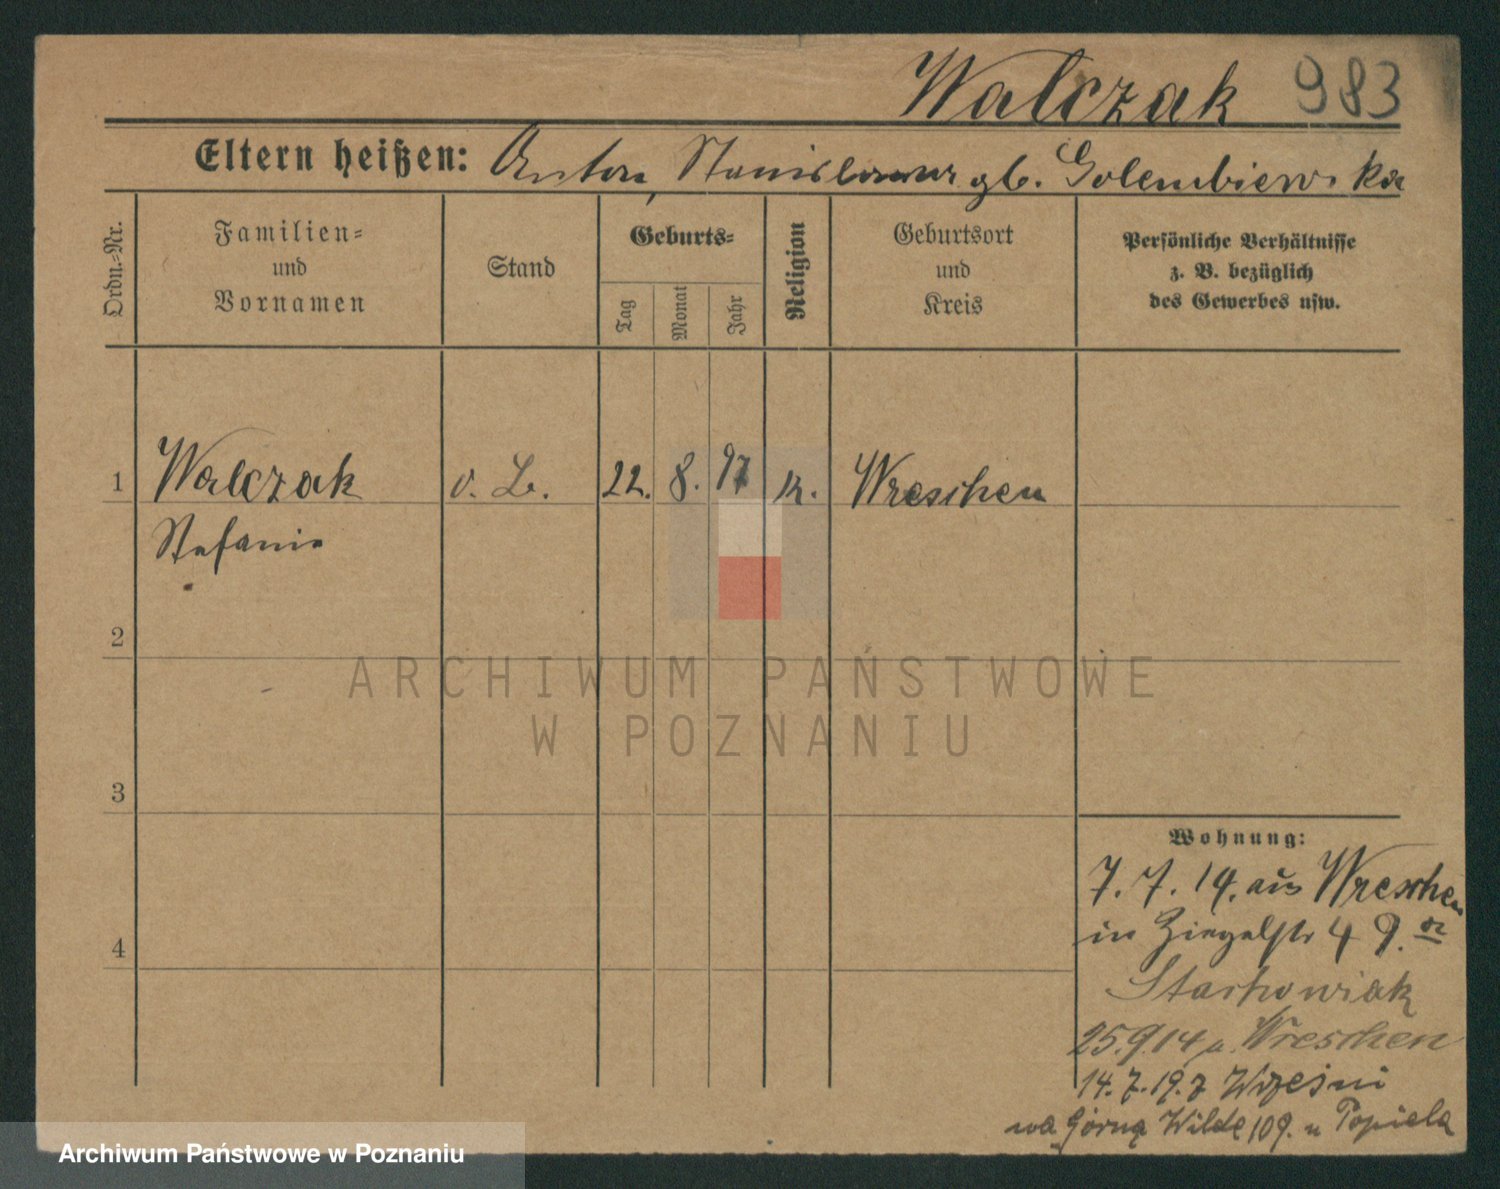 Walczak 983
Eltern heißen: Anton, Stanislawa gb. Golembiewska
Ordn.-Nr.
Familien-
und
Vornamen
Stand
Geburts-
Tag
Monat
Jahr
Religion
Geburtsort
und
Kreis
Persönliche Verhältnisse
z. B. bezüglich
des Gewerbes usw.
1 Walczak o. B. 22. 8. 97 k. Wreschen
Stefanie
2
3
4
Wohnung:
7. 7. 14. aus Wreschen
in Ziegelstr 49.
Stachowiak
25.9.14 n. Wreschen
14. 7. 19. z Wrześni
na Górną Wildę 109. u Popiela
ARCHIWUM PAŃSTWOWE
W POZNANIU
Archiwum Państwowe w Poznaniu